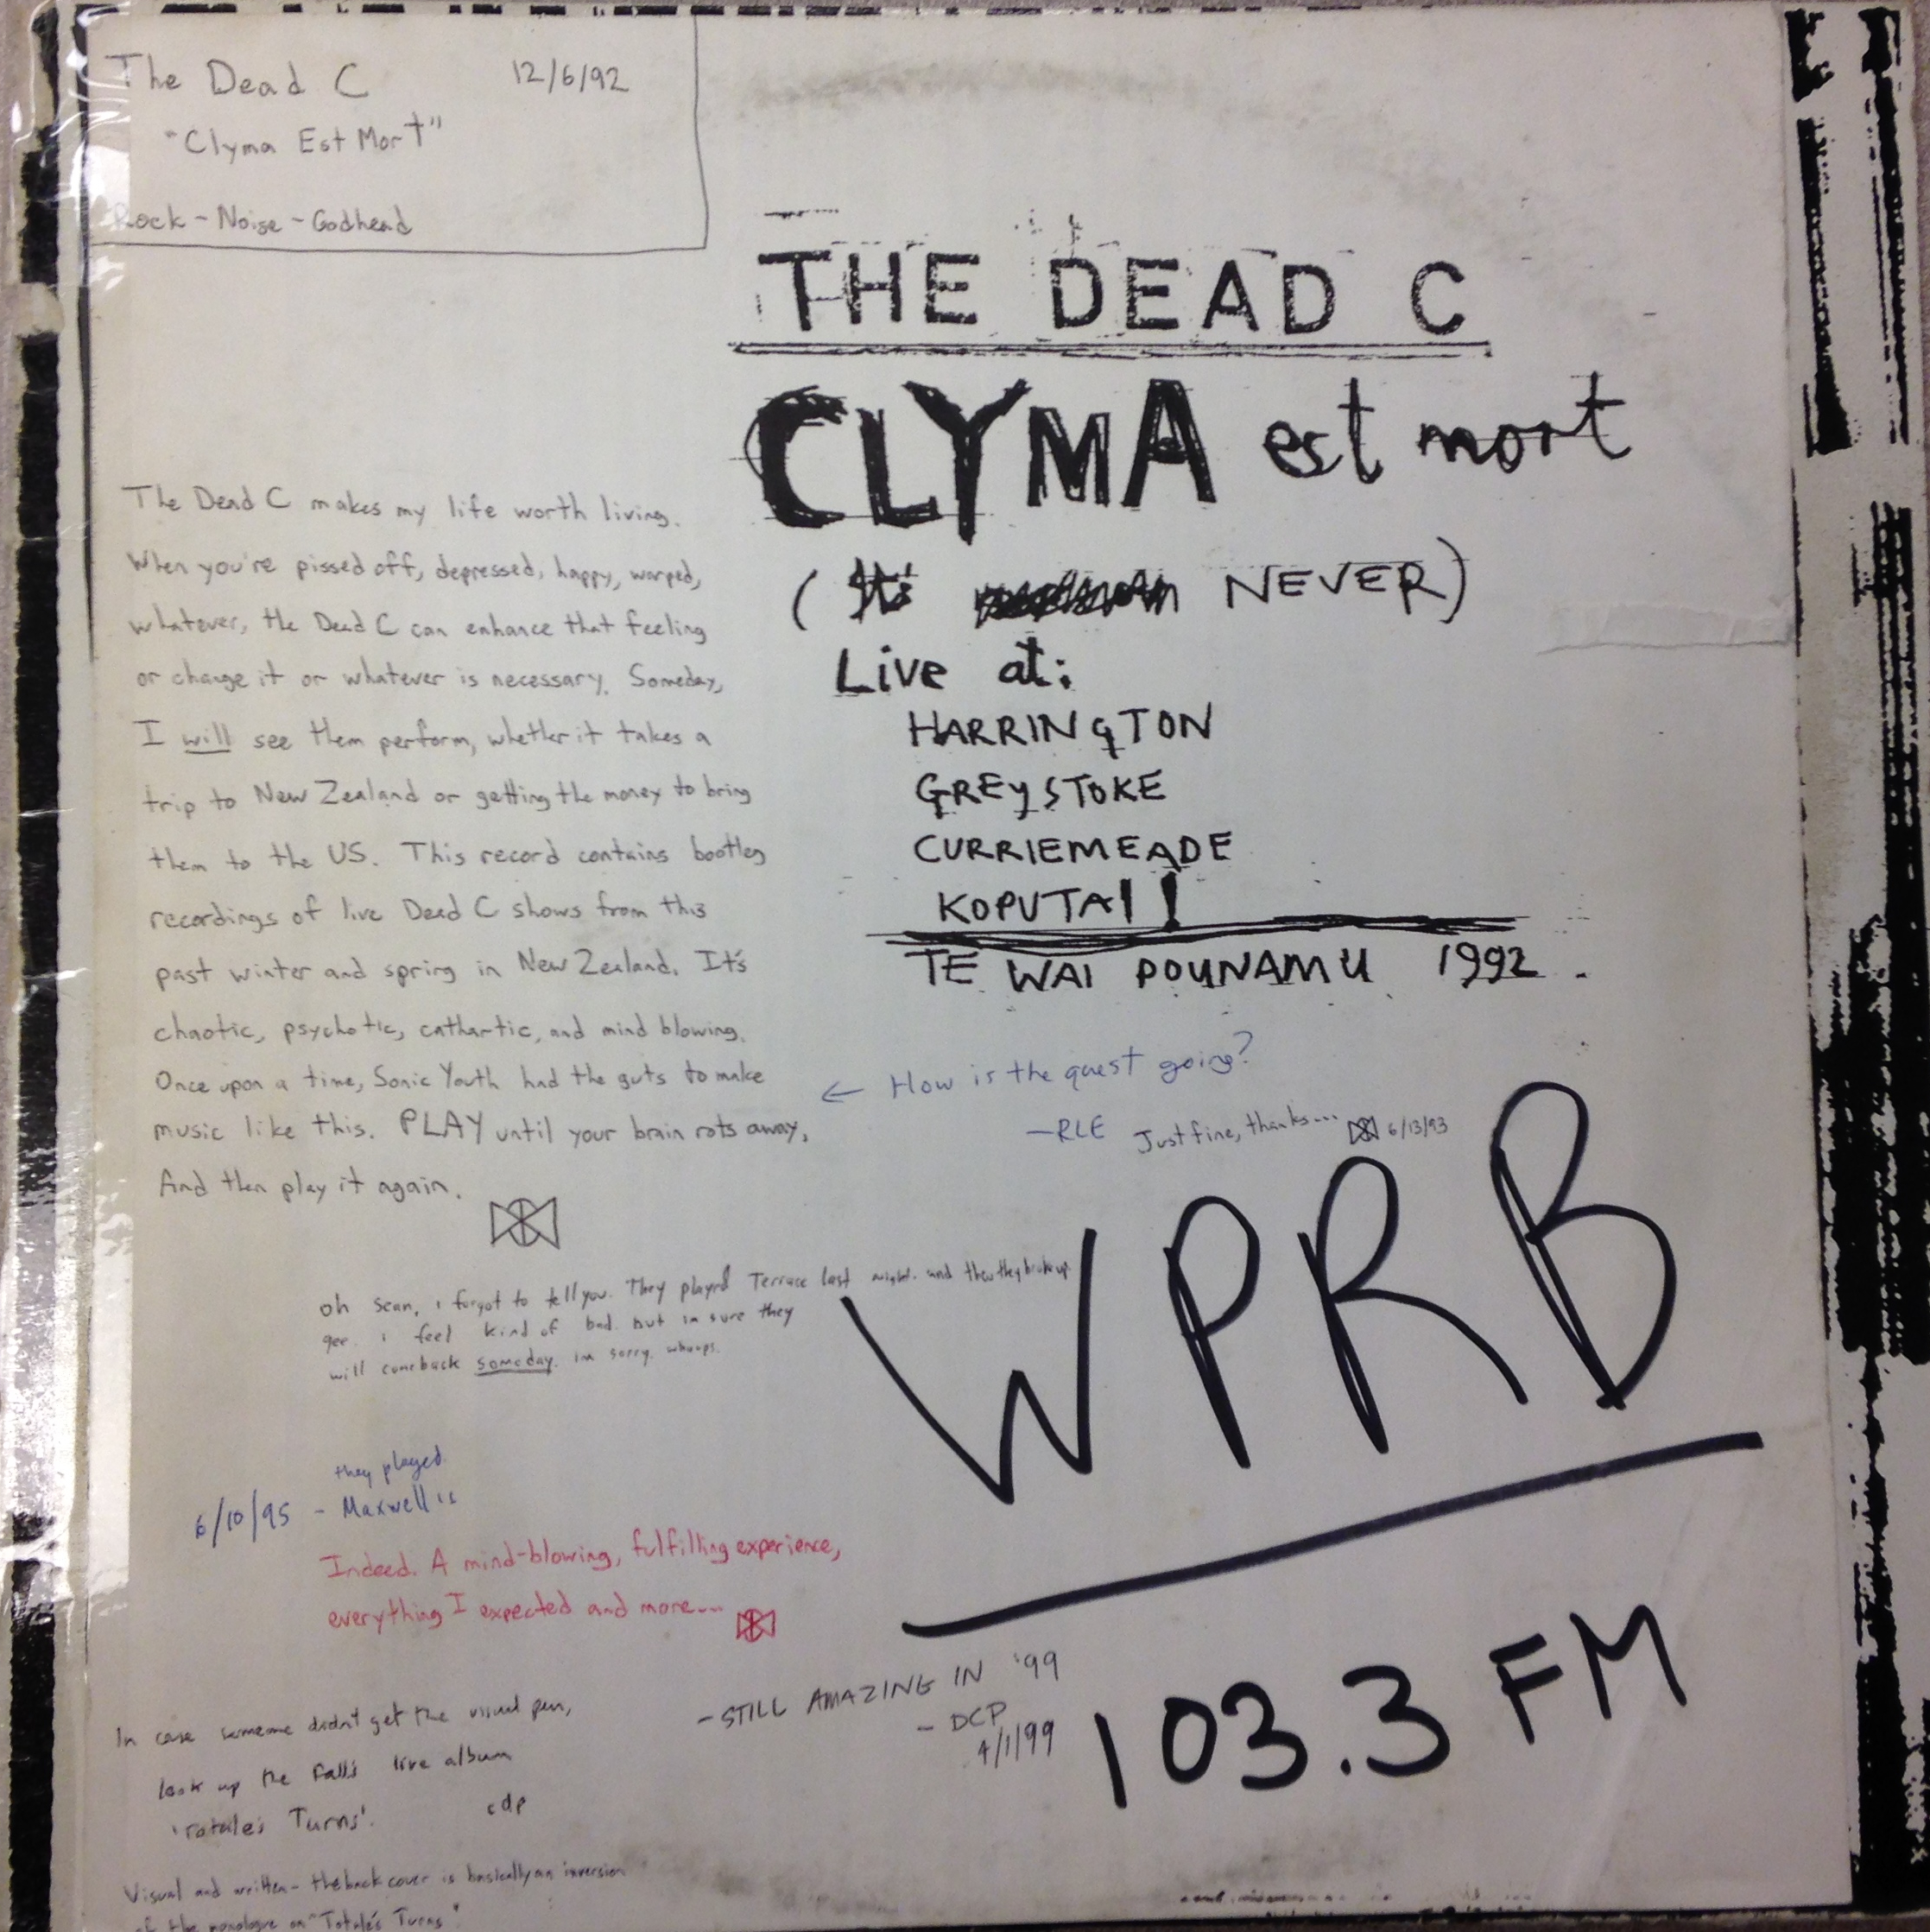 The Dead C 12/6/92
"Clyma Est Mort"
Rock - Noise - Godhead
THE DEAD C
CLYMA est mort
(It's NEVER)
Live at:
HARRINGTON
GREYSTOKE
CURRIEMEADE
KOPUTAI!
TE WAI POUNAMU 1992.
The Dead C makes my life worth living.
When you're pissed off, depressed, happy, warped,
whatever, the Dead C can enhance that feeling
or change it or whatever is necessary. Someday,
I will see them perform, whether it takes a
trip to New Zealand or getting the money to bring
them to the US. This record contains bootleg
recordings of live Dead C shows from this
past winter and spring in New Zealand. It's
chaotic, psychotic, cathartic, and mind blowing.
Once upon a time, Sonic Youth had the guts to make
music like this. PLAY until your brain rots away.
And then play it again.
← How is the quest going?
-RLE Just fine, thanks... 6/13/93
oh sean, i forgot to tell you. They played Terrace last night. and then they broke up.
gee. i feel kind of bad. but im sure they
will come back someday. im sorry. whoops.
they played
6/10/95 - Maxwell's
Indeed. A mind-blowing, fulfilling experience,
everything I expected and more...
- STILL AMAZING IN '99
- DCP
4/1/99
WPRB
103.3 FM
In case someone didn't get the visual pun,
look up the Fall's live album
'Totale's Turns'. cdp
Visual and written - the back cover is basically an inversion
of the monologue on "Totale's Turns"